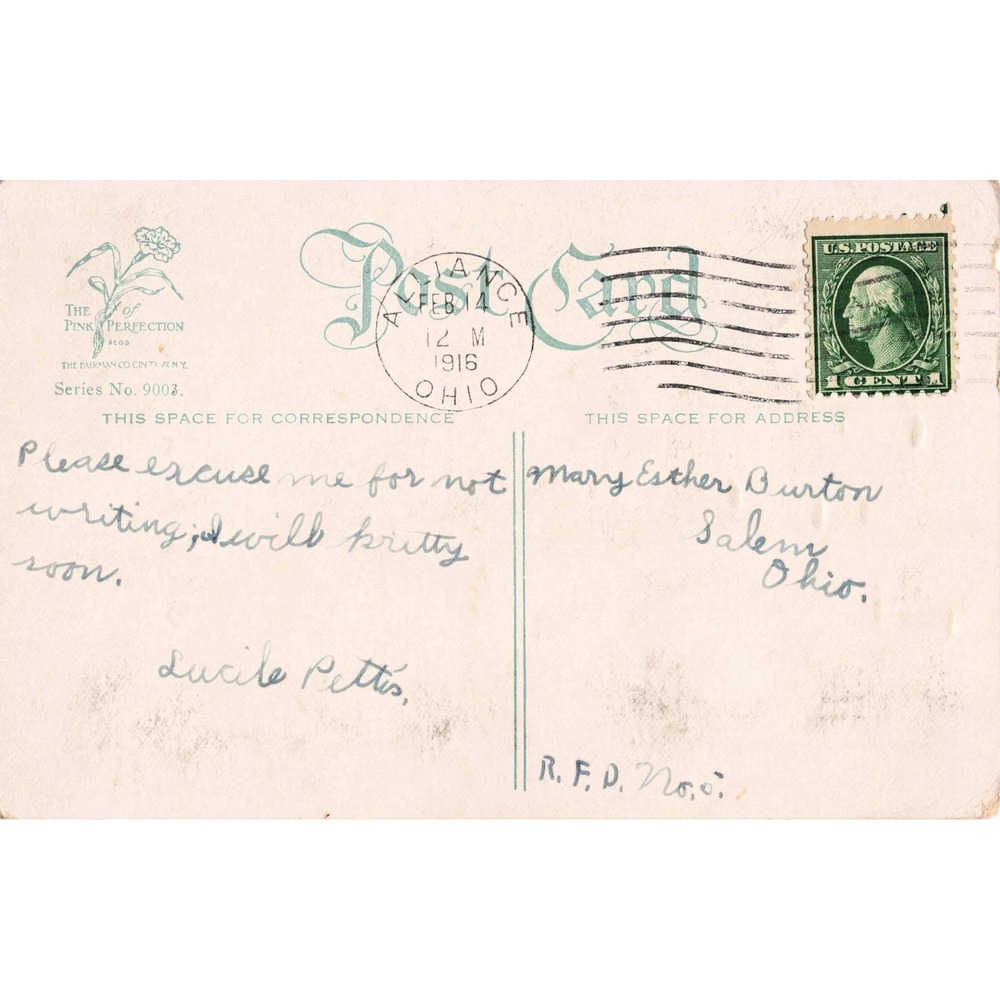 Post Card
ALLIANCE
FEB 14
12 M
1916
OHIO
U.S. POSTAGE
1 CENT 1
THE
of
PINK PERFECTION
REGD
THE FAIRMAN CO. CINTI & N.Y.
Series No. 9003.
THIS SPACE FOR CORRESPONDENCE
THIS SPACE FOR ADDRESS
Please excuse me for not
writing; I will pretty
soon.
Lucile Pettis,
Mary Esther Burton
Salem
Ohio.
R. F. D. No. 5.